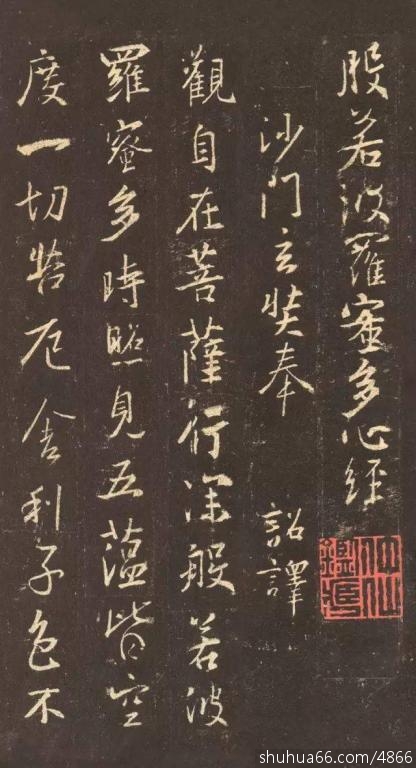 般若波羅蜜多心經
沙門玄奘奉 詔譯
觀自在菩薩行深般若波
羅蜜多時照見五蘊皆空
度一切苦厄舍利子色不
shuhua66.com/4866